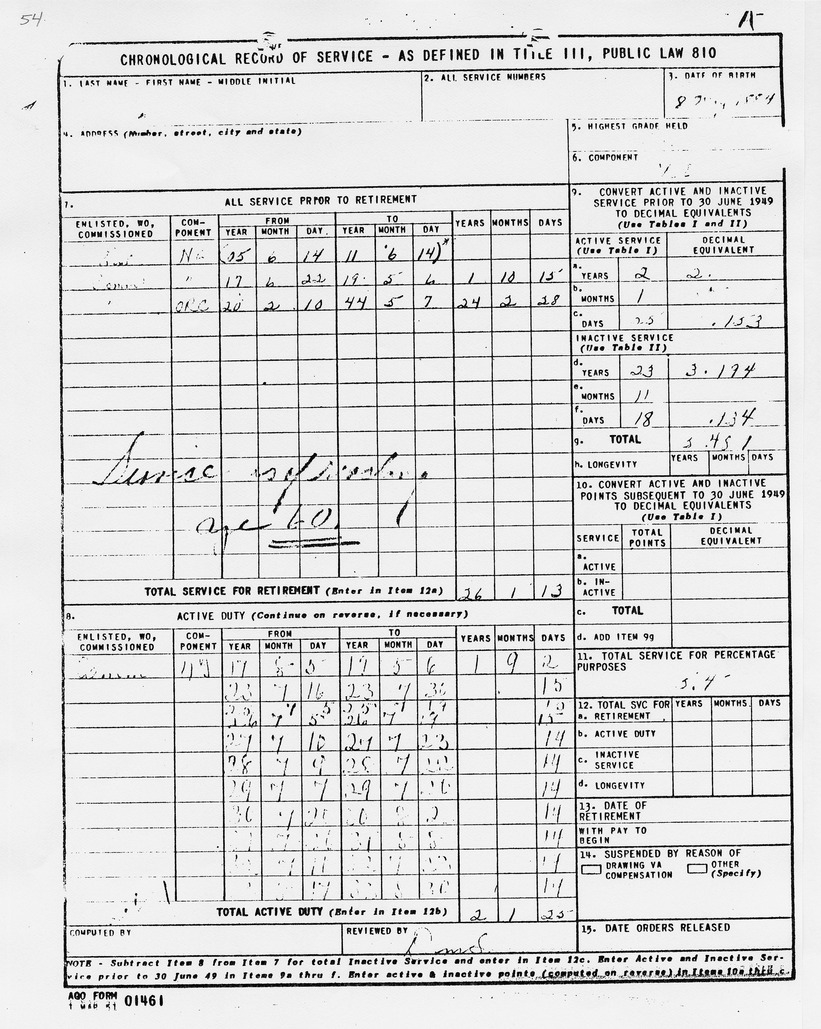 54
CHRONOLOGICAL RECORD OF SERVICE - AS DEFINED IN TITLE III, PUBLIC LAW 810
1. LAST NAME - FIRST NAME - MIDDLE INITIAL
2. ALL SERVICE NUMBERS
3. DATE OF BIRTH
4. ADDRESS (Number, street, city and state)
5. HIGHEST GRADE HELD
6. COMPONENT
7. ALL SERVICE PRIOR TO RETIREMENT
ENLISTED, WO, COMMISSIONED
COM- PONENT
FROM
TO
YEAR MONTH DAY YEAR MONTH DAY YEARS MONTHS DAYS
05 6 14 11 6 14)*
" 17 6 22 19 5 6 1 10 15
" ORC 20 2 10 44 5 7 24 2 28
age 60
TOTAL SERVICE FOR RETIREMENT (Enter in Item 12a) 26 1 13
8. ACTIVE DUTY (Continue on reverse, if necessary)
ENLISTED, WO, COMMISSIONED
COM- PONENT
FROM
TO
YEAR MONTH DAY YEAR MONTH DAY YEARS MONTHS DAYS
17 8 5 19 5 6 1 9 2
23 7 16 23 7 30 15
26 7 5 26 7 19 15
27 7 10 27 7 23 14
28 7 9 28 7 22 14
29 7 7 29 7 20 14
14
14
14
14
TOTAL ACTIVE DUTY (Enter in Item 12b) 2 1 25
COMPUTED BY
REVIEWED BY
9. CONVERT ACTIVE AND INACTIVE
SERVICE PRIOR TO 30 JUNE 1949
TO DECIMAL EQUIVALENTS
(Use Tables I and II)
ACTIVE SERVICE (Use Table I)
DECIMAL EQUIVALENT
a. YEARS 2 2.
b. MONTHS 1
c. DAYS 25 .153
INACTIVE SERVICE
(Use Table II)
d. YEARS 23 3.194
e. MONTHS 11
f. DAYS 18 .134
g. TOTAL 5.481
h. LONGEVITY YEARS MONTHS DAYS
10. CONVERT ACTIVE AND INACTIVE
POINTS SUBSEQUENT TO 30 JUNE 1949
TO DECIMAL EQUIVALENTS
(Use Table I)
SERVICE TOTAL POINTS DECIMAL EQUIVALENT
a. ACTIVE
b. IN- ACTIVE
c. TOTAL
d. ADD ITEM 9g
11. TOTAL SERVICE FOR PERCENTAGE
PURPOSES
5.4
12. TOTAL SVC FOR YEARS MONTHS DAYS
a. RETIREMENT
b. ACTIVE DUTY
c. INACTIVE SERVICE
d. LONGEVITY
13. DATE OF
RETIREMENT
WITH PAY TO
BEGIN
14. SUSPENDED BY REASON OF
DRAWING VA COMPENSATION
OTHER (Specify)
15. DATE ORDERS RELEASED
NOTE - Subtract Item 8 from Item 7 for total Inactive Service and enter in Item 12c. Enter Active and Inactive Ser-
vice prior to 30 June 49 in Items 9a thru f. Enter active & inactive points (computed on reverse) in Items 10a thru c.
AGO FORM 01461
1 MAR 51